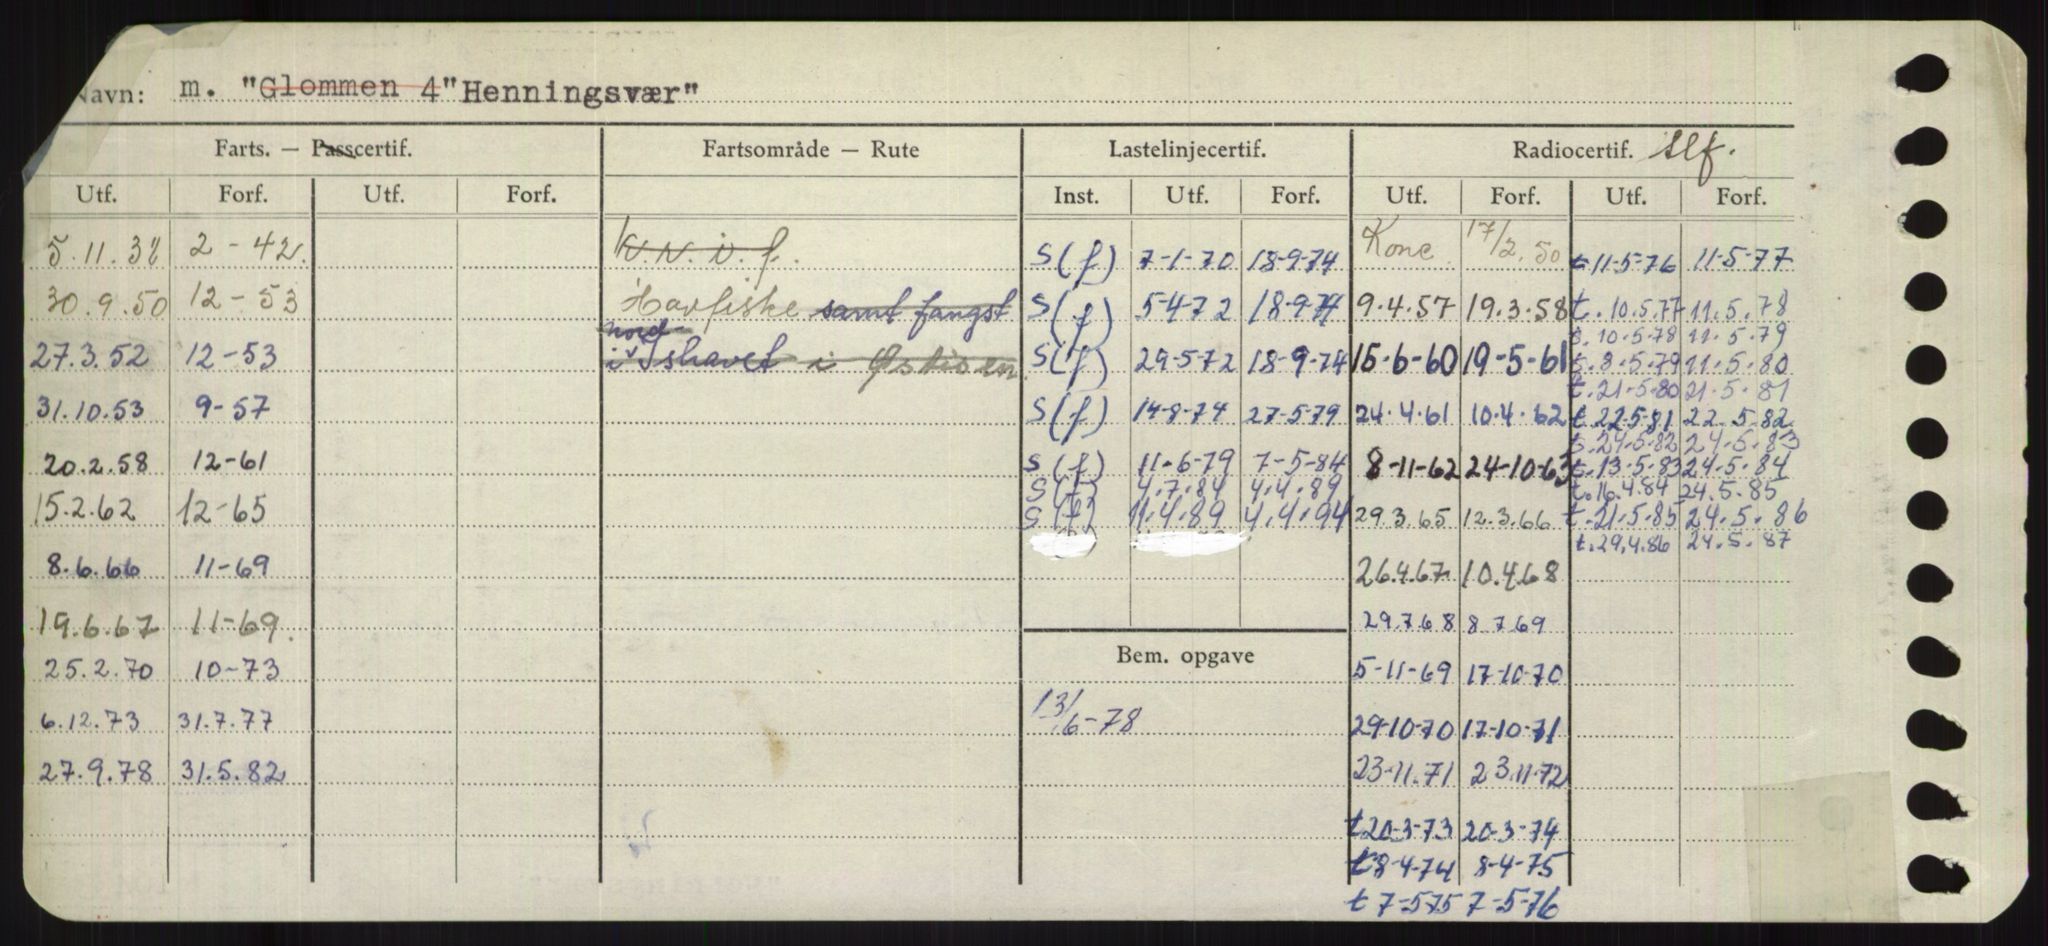 Navn: m. "Glommen 4" Henningsvær"
Farts. — Passcertif. Fartsområde — Rute Lastelinjecertif. Radiocertif. Slf.
Utf. Forf. Utf. Forf. Inst. Utf. Forf. Utf. Forf. Utf. Forf.
5.11.38 2-42. K.N.i.f. S(f) 7-1-70 18-9-74 Konc. 17/2.50 t 11-5-76 11-5-77
30.9.50 12-53 Havfiske samt fangst S(f) 5-4-72 18-9-74 9.4.57 19.3.58 t. 10.5.77 11.5.78
nord- s. 10.5.78 11.5.79
27.3.52 12-53 i Ishavet i Østisen. S(f) 29-5-72 18-9-74 15-6-60 19-5-61 s. 8.5.79 11.5.80
t. 21.5.80 21.5.81
31.10.53 9-57 S(f) 14-8-74 27-5-79 24.4.61 10.4.62 t. 22.5.81 22.5.82
s. 24.5.82 24.5.83
20.2.58 12-61 S(f) 11-6-79 7-5-84 8-11-62 24-10-63 s. 13.5.83 24.5.84
S(f) 4.7.84 4.4.89 t. 16.4.84 24.5.85
15.2.62 12-65 S(f) 11.4.89 4.4.94 29.3.65 12.3.66 t. 21.5.85 24.5.86
t. 29.4.86 24.5.87
8.6.66 11-69 26.4.67 10.4.68
19.6.67 11-69. 29.7.68 8.7.69
25.2.70 10-73 Bem. opgave 5-11-69 17-10-70
6.12.73 31.7.77 13/6-78 29-10-70 17-10-71
27.9.78 31.5.82 23-11.71 23.11-72
t 20-3-73 20-3-74
t 8-4-74 8-4-75
t 7-5-75 7-5-76